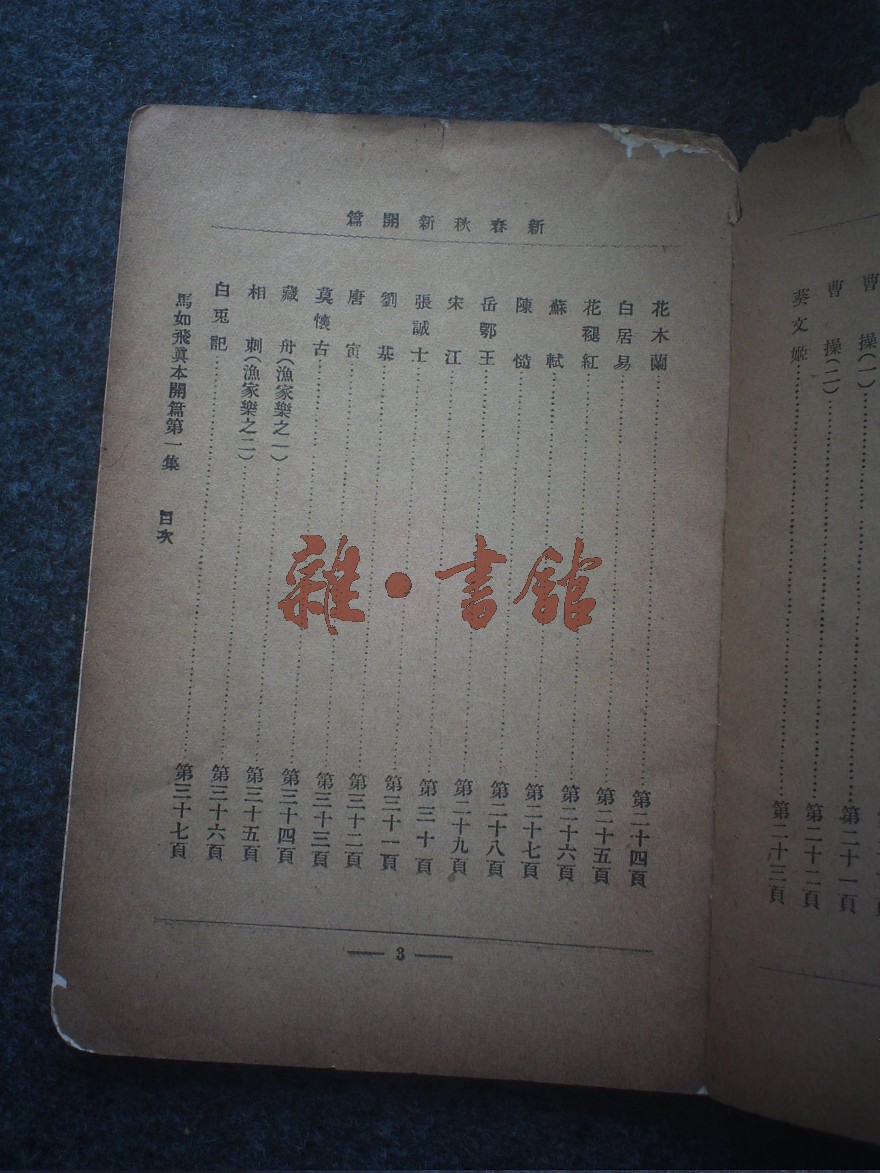 曹操(一)……第二十一頁
曹操(二)……第二十二頁
蔡文姬……第二十三頁
新春秋新開篇
花木蘭……第二十四頁
白居易……第二十五頁
花褪紅……第二十六頁
蘇軾……第二十七頁
陳慥……第二十八頁
岳鄂王……第二十九頁
宋江……第三十頁
張誠士……第三十一頁
劉基……第三十二頁
唐寅……第三十三頁
莫懷古……第三十四頁
藏舟(漁家樂之一)……第三十五頁
相刺(漁家樂之二)……第三十六頁
白兎記……第三十七頁
馬如飛眞本開篇第一集 目次
— 3 —
雜·書館